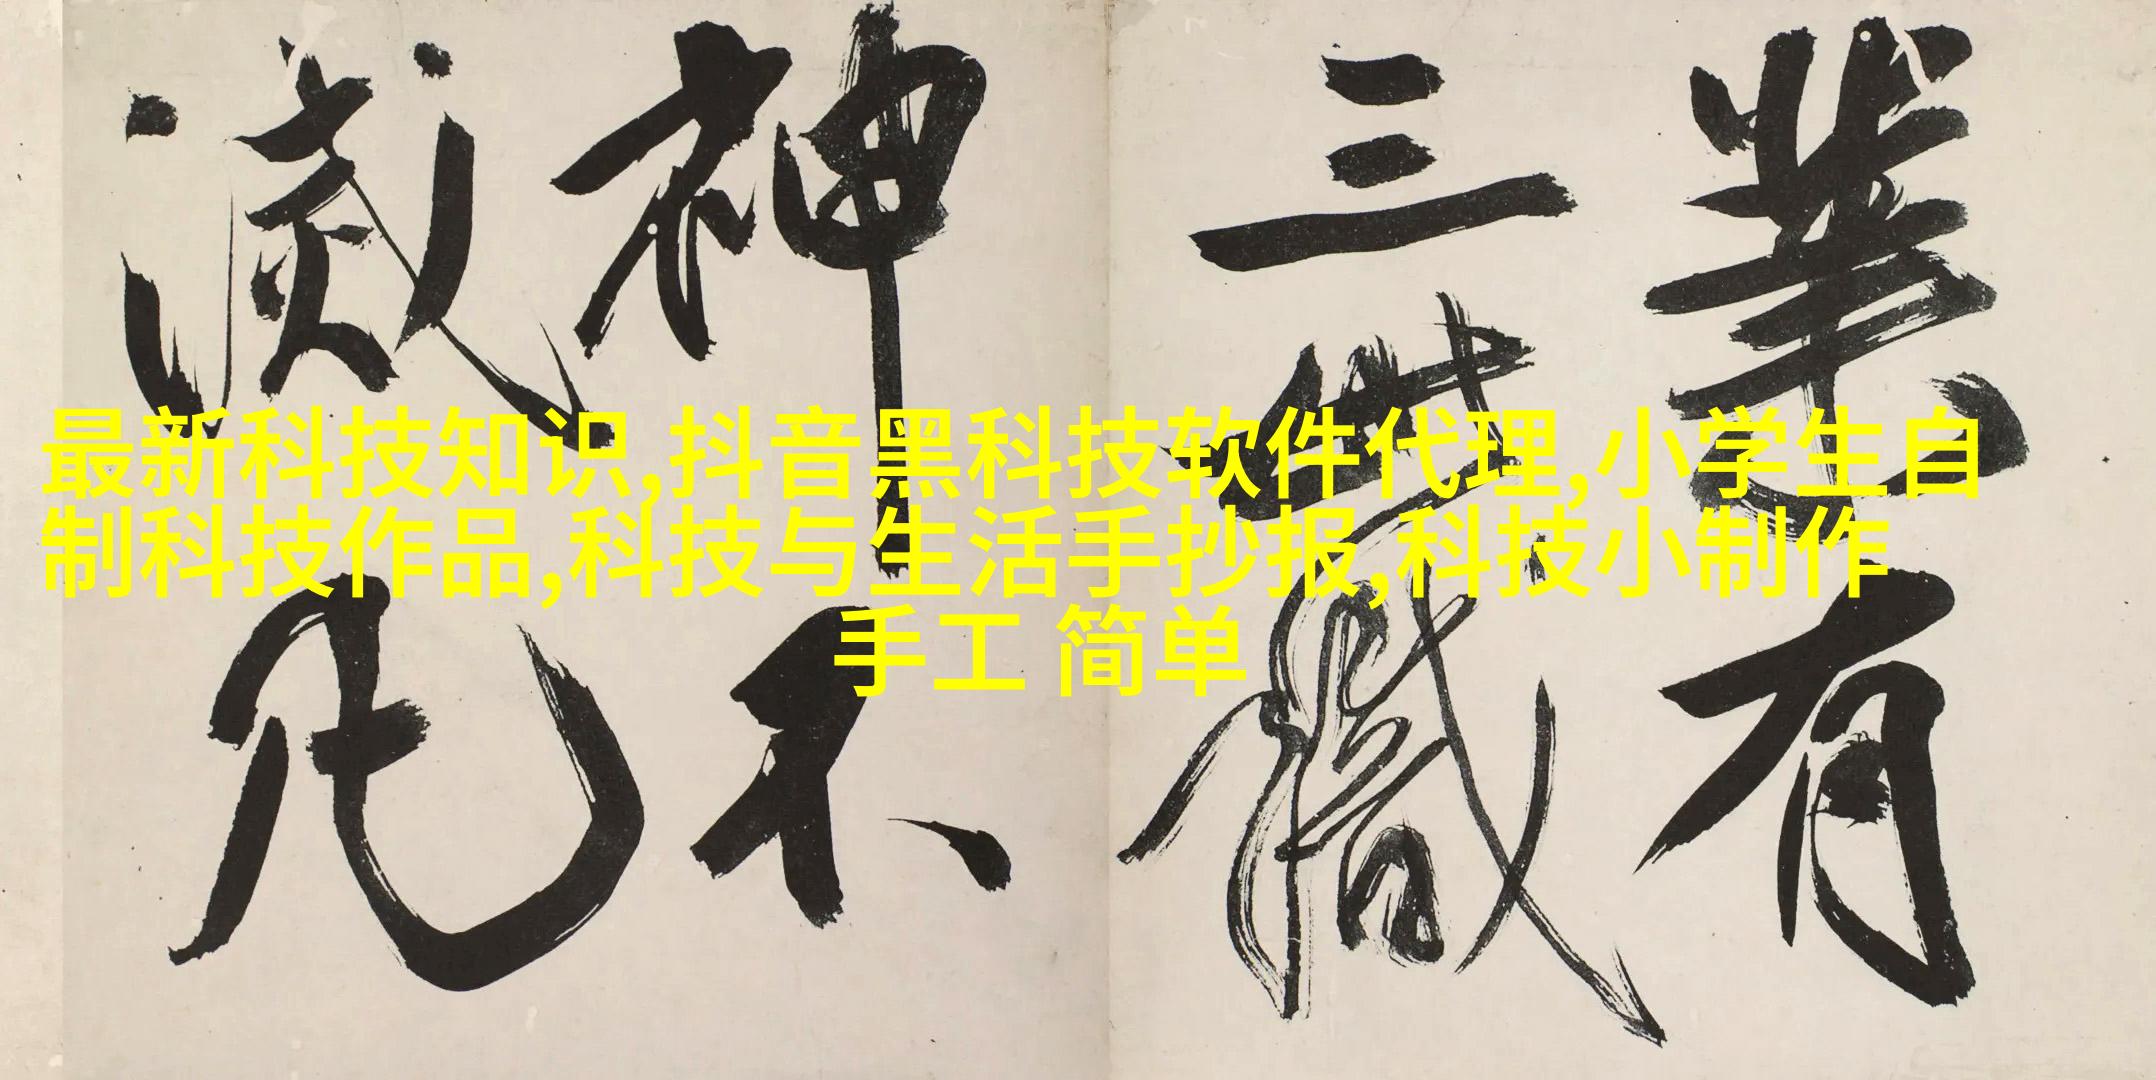 業有
三世職
神不
滅凡
最新科技知识,抖音黑科技软件代理,小学生自
制科技作品,科技与生活手抄报,科技小制作
手工 简单